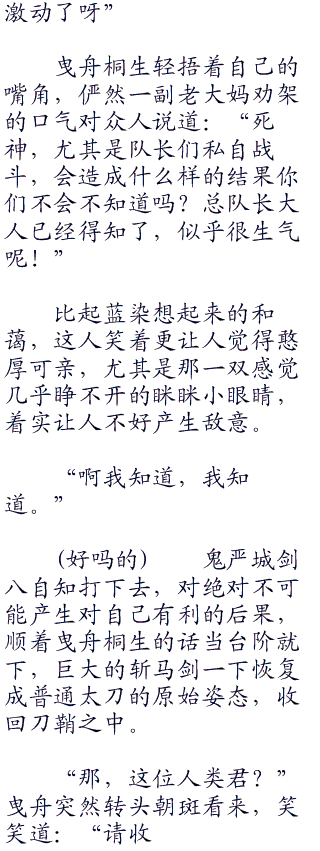 激动了呀”
曳舟桐生轻捂着自己的
嘴角，俨然一副老大妈劝架
的口气对众人说道：“死
神，尤其是队长们私自战
斗，会造成什么样的结果你
们不会不知道吗？总队长大
人已经得知了，似乎很生气
呢！”
比起蓝染想起来的和
蔼，这人笑着更让人觉得憨
厚可亲，尤其是那一双感觉
几乎睁不开的眯眯小眼睛，
着实让人不好产生敌意。
“啊我知道，我知
道。”
(好吗的) 鬼严城剑
八自知打下去，对绝对不可
能产生对自己有利的后果，
顺着曳舟桐生的话当台阶就
下，巨大的斩马剑一下恢复
成普通太刀的原始姿态，收
回刀鞘之中。
“那，这位人类君？”
曳舟突然转头朝斑看来，笑
笑道：“请收